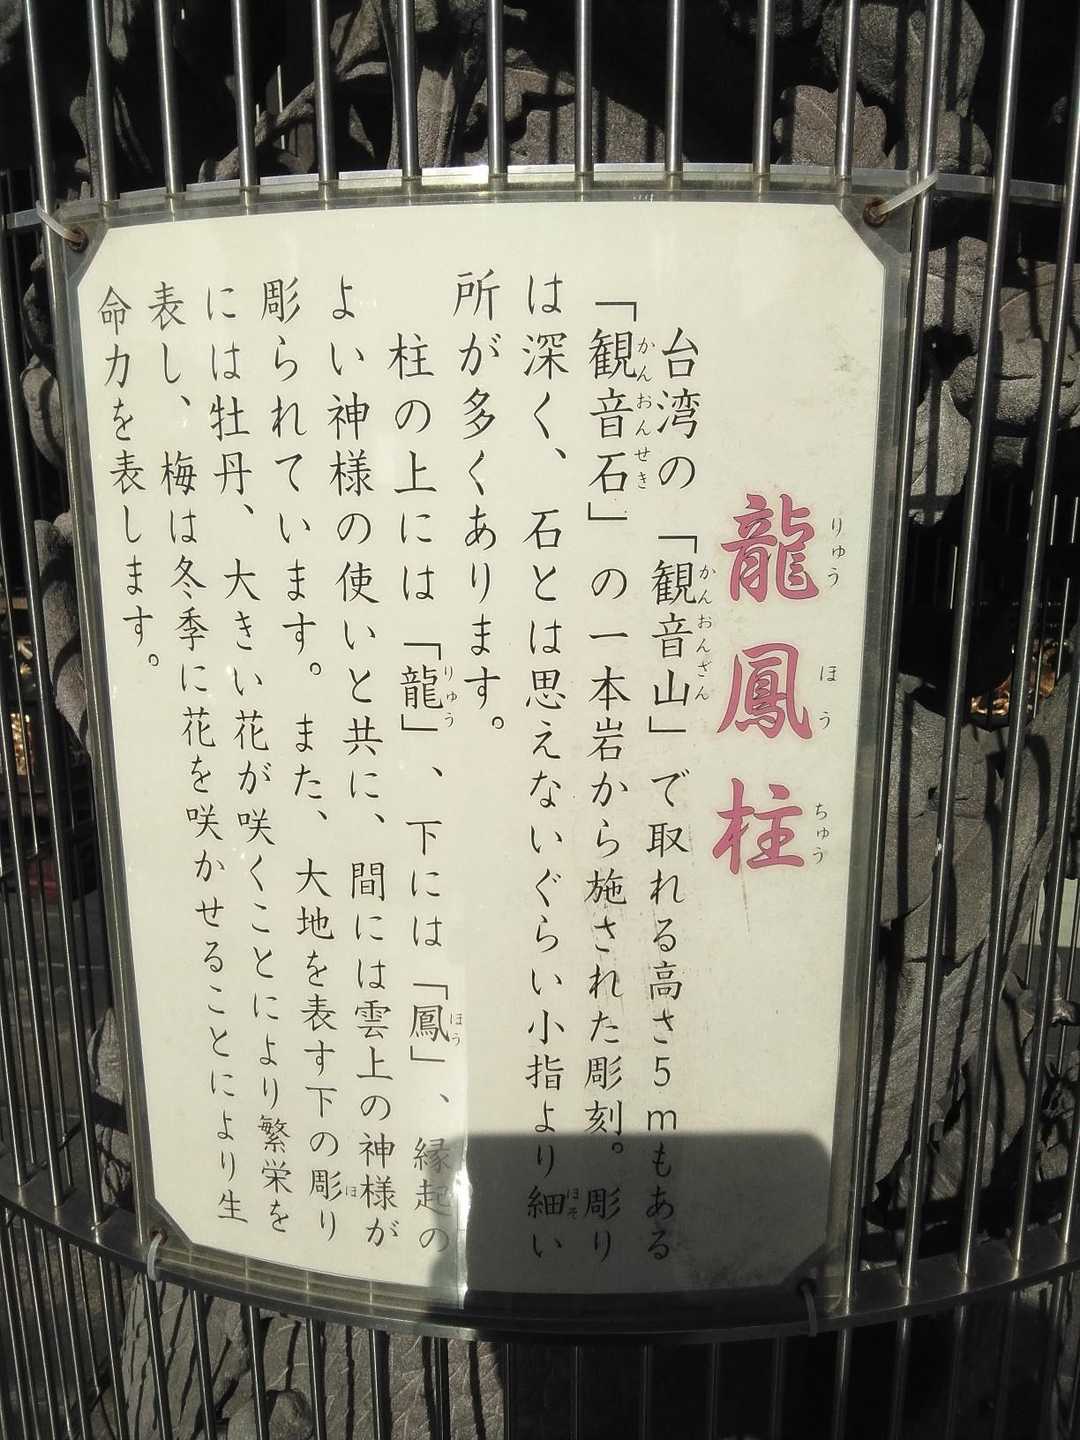 龍鳳柱
りゅう ほう ちゅう
台湾の「観音山」で取れる高さ5mもある
かんおんざん
「観音石」の一本岩から施された彫刻。彫り
かんおんせき
は深く、石とは思えないぐらい小指より細い
ほそ
所が多くあります。
柱の上には「龍」、下には「鳳」、縁起の
りゅう ほう
よい神様の使いと共に、間には雲上の神様が
彫られています。また、大地を表す下の彫り
ほ
には牡丹、大きい花が咲くことにより繁栄を
表し、梅は冬季に花を咲かせることにより生
命力を表します。